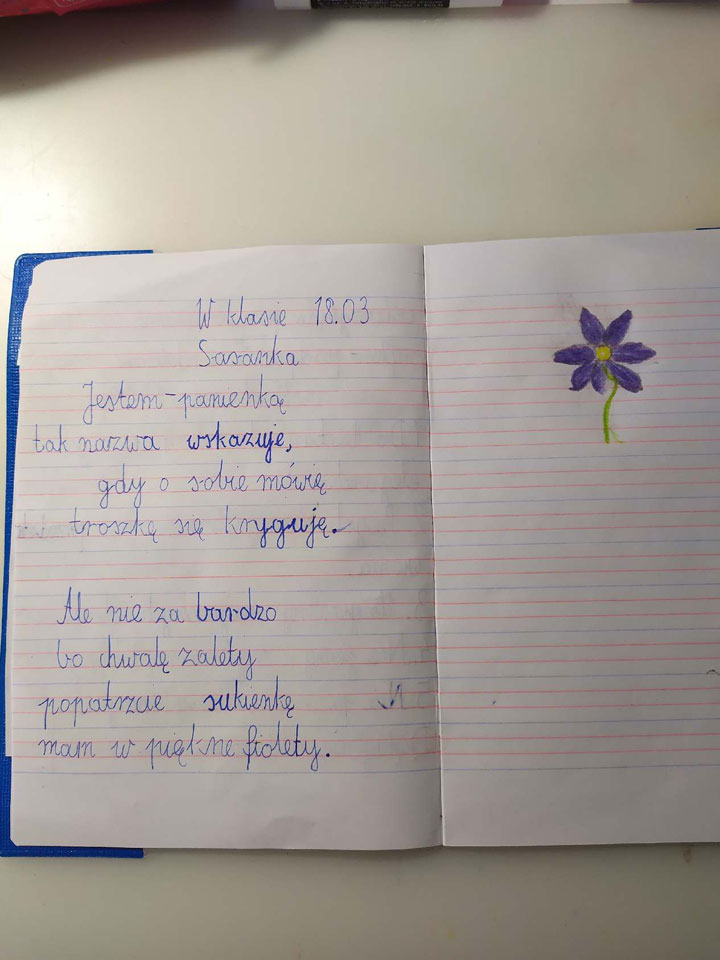 W klasie 18.03
Sasanka
Jestem-panienką
tak nazwa wskazuje,
gdy o sobie mówię
troszkę się kryguję.
Ale nie za bardzo
bo chwalę zalety
popatrzcie sukienkę
mam w piękne fiolety.